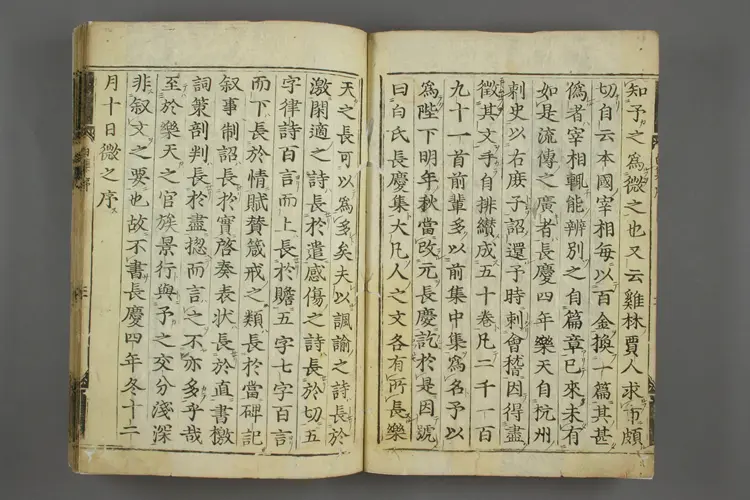 知予之爲微之也又云雞林賈人求市頗
切自云本國宰相每以百金換一篇其甚
僞者宰相輒能辨別之自篇章已來未有
如是流傳之廣者長慶四年樂天自杭州
刺史以右庶子詔還予時刺會稽因得盡
徵其文手自排纘成五十卷凡二千一百
九十一首前輩多以前集中集爲名予以
爲陛下明年秋當改元長慶訖於是因號
曰白氏長慶集大凡人之文各有所長樂
天之長可以爲多矣夫以諷諭之詩長於
激閑適之詩長於遣感傷之詩長於切五
字律詩百言而上長於贍五字七字百言
而下長於情賦賛箴戒之類長於當碑記
叙事制詔長於實啓奏表狀長於直書檄
詞策剖判長於盡揔而言之不亦多乎哉
至於樂天之官族景行與予之交分淺深
非叙文之要也故不書長慶四年冬十二
月十日微之序